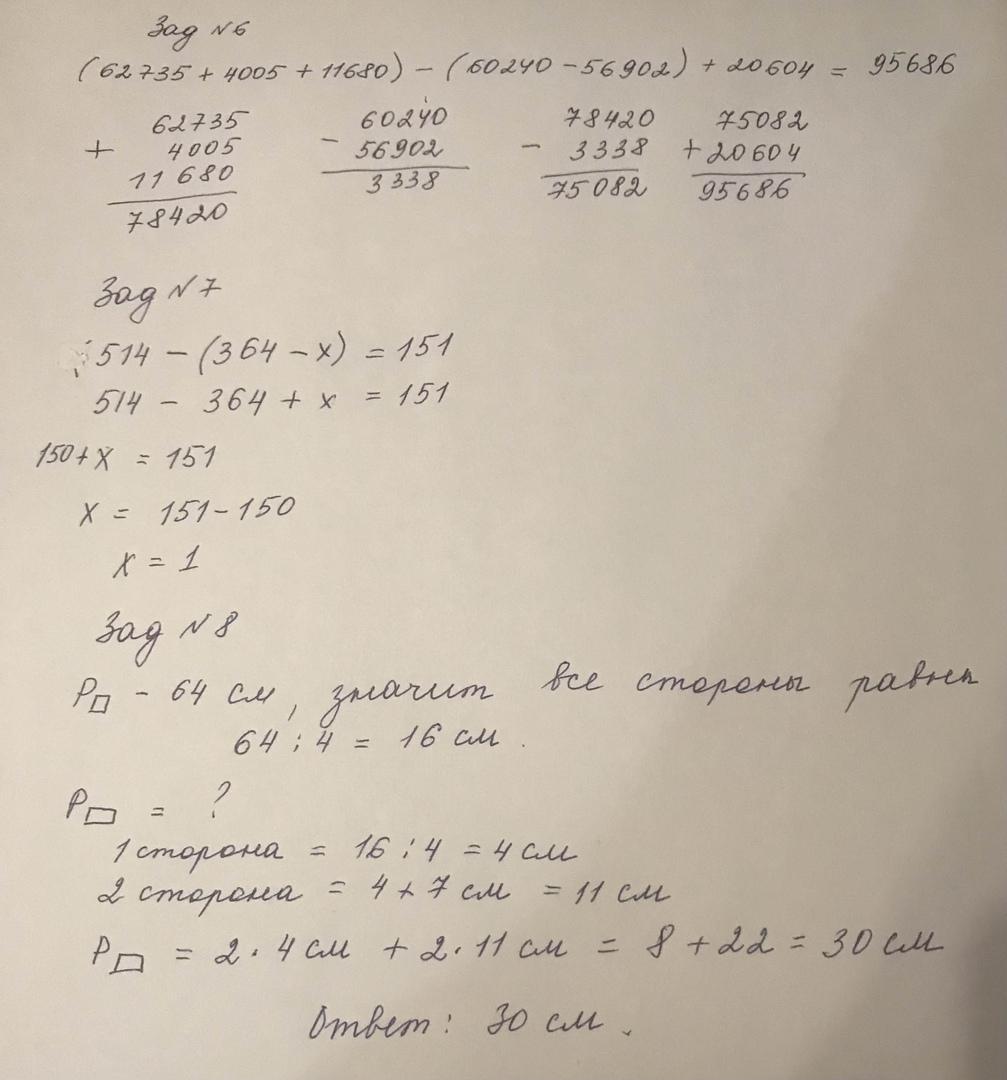 Зад №6
(62735 + 4005 + 11680) - (60240 - 56902) + 20604 = 95686
62735 + 4005 11680 78420
60240 - 56902 3338
78420 - 3338 75082
75082 + 20604 95686
Зад №7
514 - (364 - x) = 151
514 - 364 + x = 151
150 + x = 151
x = 151 - 150
x = 1
Зад №8
P□ - 64 см, значит все стороны равны
64 : 4 = 16 см.
P▭ = ?
1 сторона = 16 : 4 = 4 см
2 сторона = 4 + 7 см = 11 см
P▭ = 2 · 4 см + 2 · 11 см = 8 + 22 = 30 см
Ответ: 30 см.